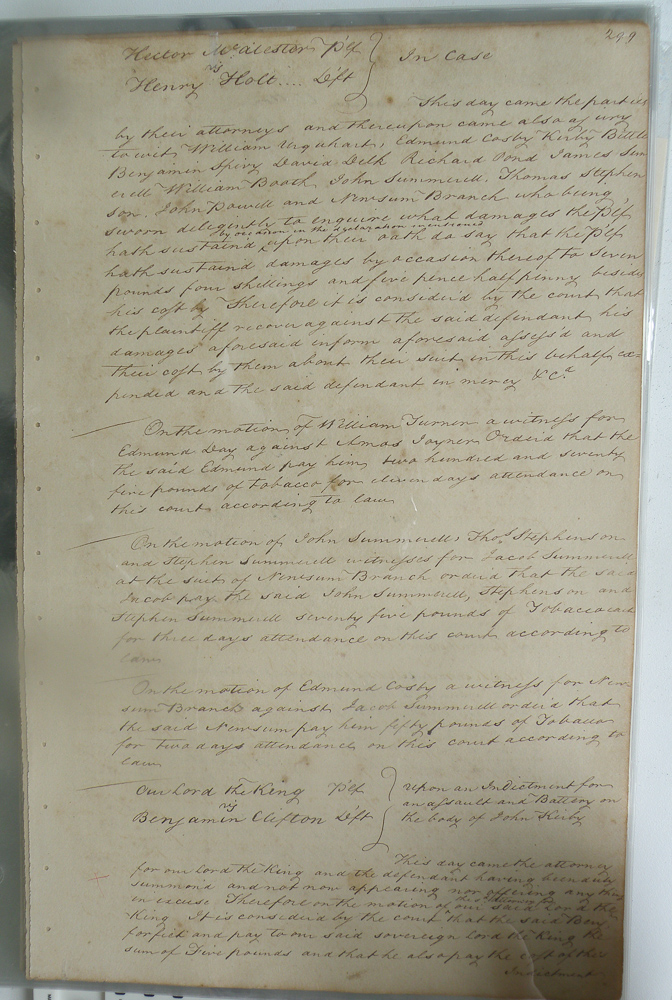 299
Hector McAlester Plf } In Case
vs
Henry Holt .... Deft
This day came the parties
by their attorneys and thereupon came also a jury
to wit, William Urquhart, Edmund Cosby Kirby Bittle
Benjamin Spivy David Delk Richard Pond James Sum
erell William Booth John Summerell, Thomas Stephen
son, John Powell and Newsum Branch who being
sworn deligently to enquire what damages the Plf
by occasion in the declaration mentioned
hath sustain'd upon their oath do say that the Plf
hath sustaind damages by occasion thereof to seven
pounds four shillings and five pence half penny besides
his cost by Therefore it is consider'd by the court that
the plaintiff recover against the said defendant his
damages aforesaid in form aforesaid assess'd and
their cost by them about their suit in this behalf ex-
pended and the said defendant in mercy &c.a
On the motion of William Turner a witness for
Edmund Day against Amos Joyner Order'd that the
the said Edmund pay him two hundred and seventy
five pounds of tobacco for eleven days attendance on
this court according to law
On the motion of John Summerell, Thos. Stephenson
and Stephen Summerell witnesses for Jacob Summerell
at the suit of Newsum Branch orderd that the said
Jacob pay the said John Summerell, Stephenson and
Stephen Summerell seventy five pounds of Tobacco each
for three days attendance on this court according to
law
On the motion of Edmund Cosby a witness for New-
sum Branch against Jacob Summerell order'd that
the said Newsum pay him fifty pounds of Tobacco
for two days attendance on this court according to
law
Our Lord the King Plf } Upon an Indictment for
vs an assault and Battery on
Benjamin Clifton Deft the body of John Kirby
This day came the attorney
for our Lord the King and the defendant having been duly
summond and not now appearing nor offering any thing
in excuse Therefore on the motion of our said Lord the
King It is consider'd by the court that the said Benj
forfeit and pay to our said sovereign lord the King the
sum of Five pounds and that he also pay the cost of this
Indictment